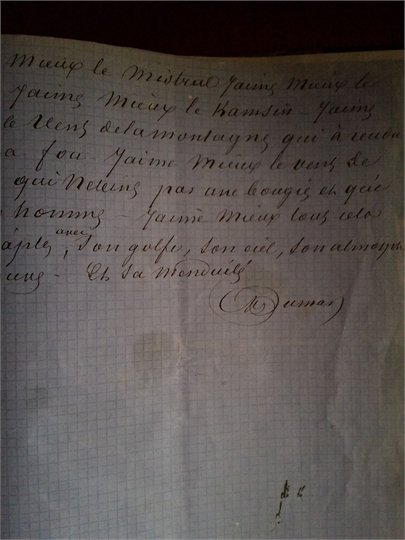 mieux le mistral j'aime mieux le
j'aime mieux le Kamsin - j'aime
le Vent de la montagne qui a rendu
a fou - j'aime mieux le vent de
qui n'eteins pas une bougie et que
homme - j'aime mieux tous cela
aples avec, son golfe, son ciel, son atmosph
une - Et sa
Dumas